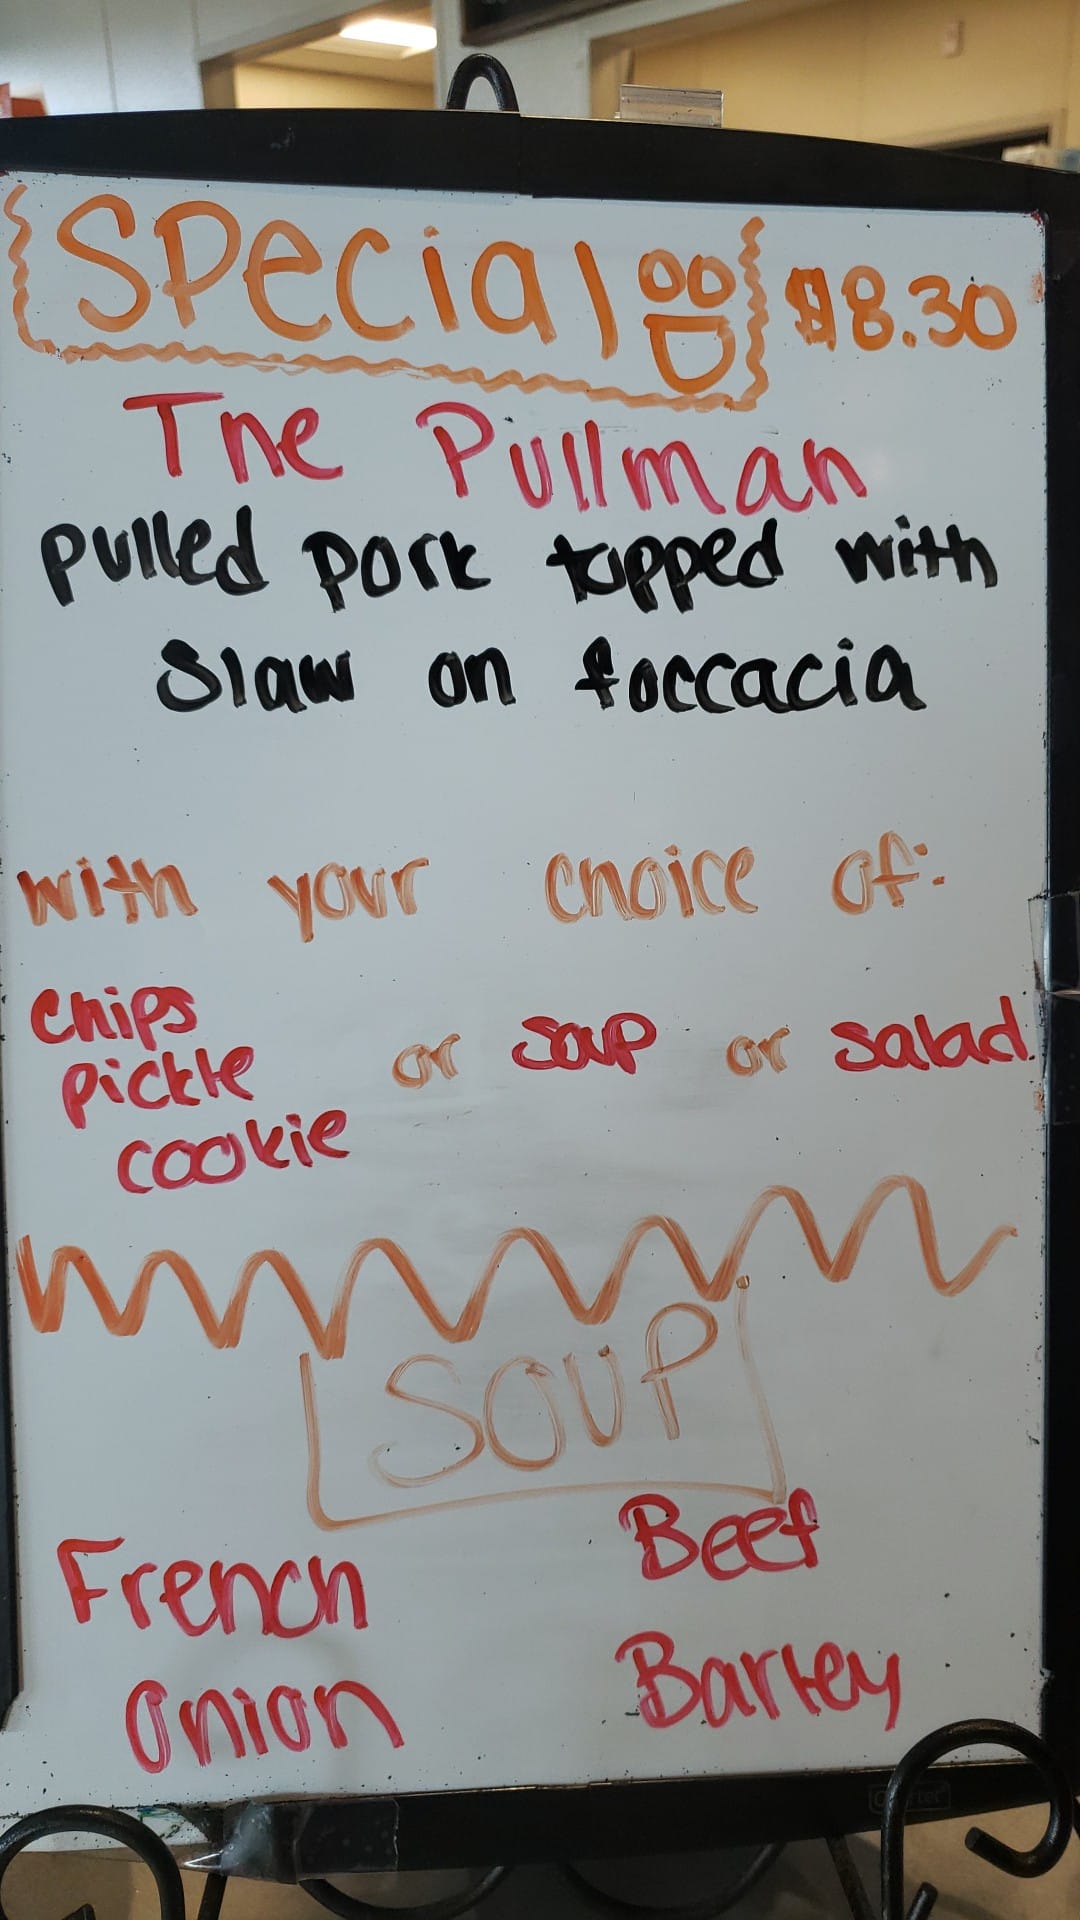 Special $8.30
The Pullman
pulled pork topped with
slaw on foccacia
with your choice of:
chips
pickle or soup or salad
cookie
SOUP
French Beef
Onion Barley